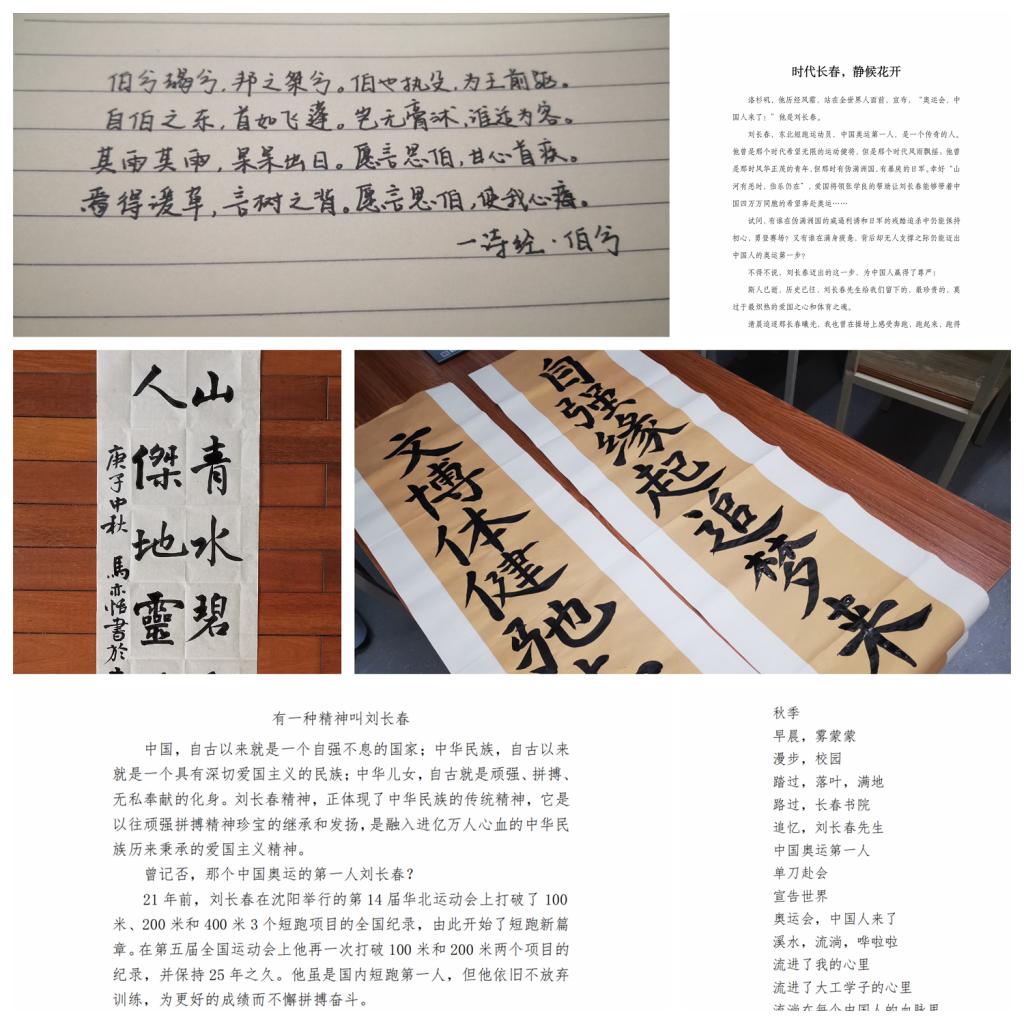 伯兮朅兮,邦之桀兮。伯也执殳,为王前驱。
自伯之东,首如飞蓬。岂无膏沐,谁适为容。
其雨其雨,杲杲出日。愿言思伯,甘心首疾。
焉得谖草,言树之背。愿言思伯,使我心痗。
—诗经·伯兮
时代长春,静候花开
洛杉矶,他历经风霜,站在全世界人面前,宣布,“奥运会,中
国人来了!”他是刘长春。
刘长春,东北短跑运动员,中国奥运第一人,是一个传奇的人。
他曾是那个时代希望无限的运动健将,但是那个时代风雨飘摇;他曾
是那时风华正茂的青年,但那时有伪满洲国,有暴戾的日军,幸好“山
河有恙时,伯乐仍在”,爱国将领张学良的帮助让刘长春能够带着中
国四万万同胞的希望奔赴奥运……
试问,有谁在伪满洲国的威逼利诱和日军的残酷追杀中仍能保持
初心,勇登赛场?又有谁在满身疲惫,背后却无人支撑之际仍能迈出
中国人的奥运第一步?
不得不说,刘长春迈出的这一步,为中国人赢得了尊严!
斯人已逝,历史已往,刘长春先生给我们留下的,最珍贵的,莫
过于最炽热的爱国之心和体育之魂。
清晨追逐那长春曦光,我也曾在操场上感受奔跑,跑起来,跑得
山青水碧
人傑地靈
庚子中秋 馬亦恬書於
自强缘起追梦来
文博体健驰
有一种精神叫刘长春
中国,自古以来就是一个自强不息的国家;中华民族,自古以来
就是一个具有深切爱国主义的民族;中华儿女,自古就是顽强、拼搏、
无私奉献的化身。刘长春精神,正体现了中华民族的传统精神,它是
以往顽强拼搏精神珍宝的继承和发扬,是融入进亿万人心血的中华民
族历来秉承的爱国主义精神。
曾记否,那个中国奥运的第一人刘长春?
21 年前,刘长春在沈阳举行的第 14 届华北运动会上打破了 100
米、200 米和 400 米 3 个短跑项目的全国纪录,由此开始了短跑新篇
章。在第五届全国运动会上他再一次打破 100 米和 200 米两个项目的
纪录,并保持 25 年之久。他虽是国内短跑第一人,但他依旧不放弃
训练,为更好的成绩而不懈拼搏奋斗。
秋季
早晨,雾蒙蒙
漫步,校园
踏过,落叶,满地
路过,长春书院
追忆,刘长春先生
中国奥运第一人
单刀赴会
宣告世界
奥运会,中国人来了
溪水,流淌,哗啦啦
流进了我的心里
流进了大工学子的心里
流淌在每个中国人的血脉里